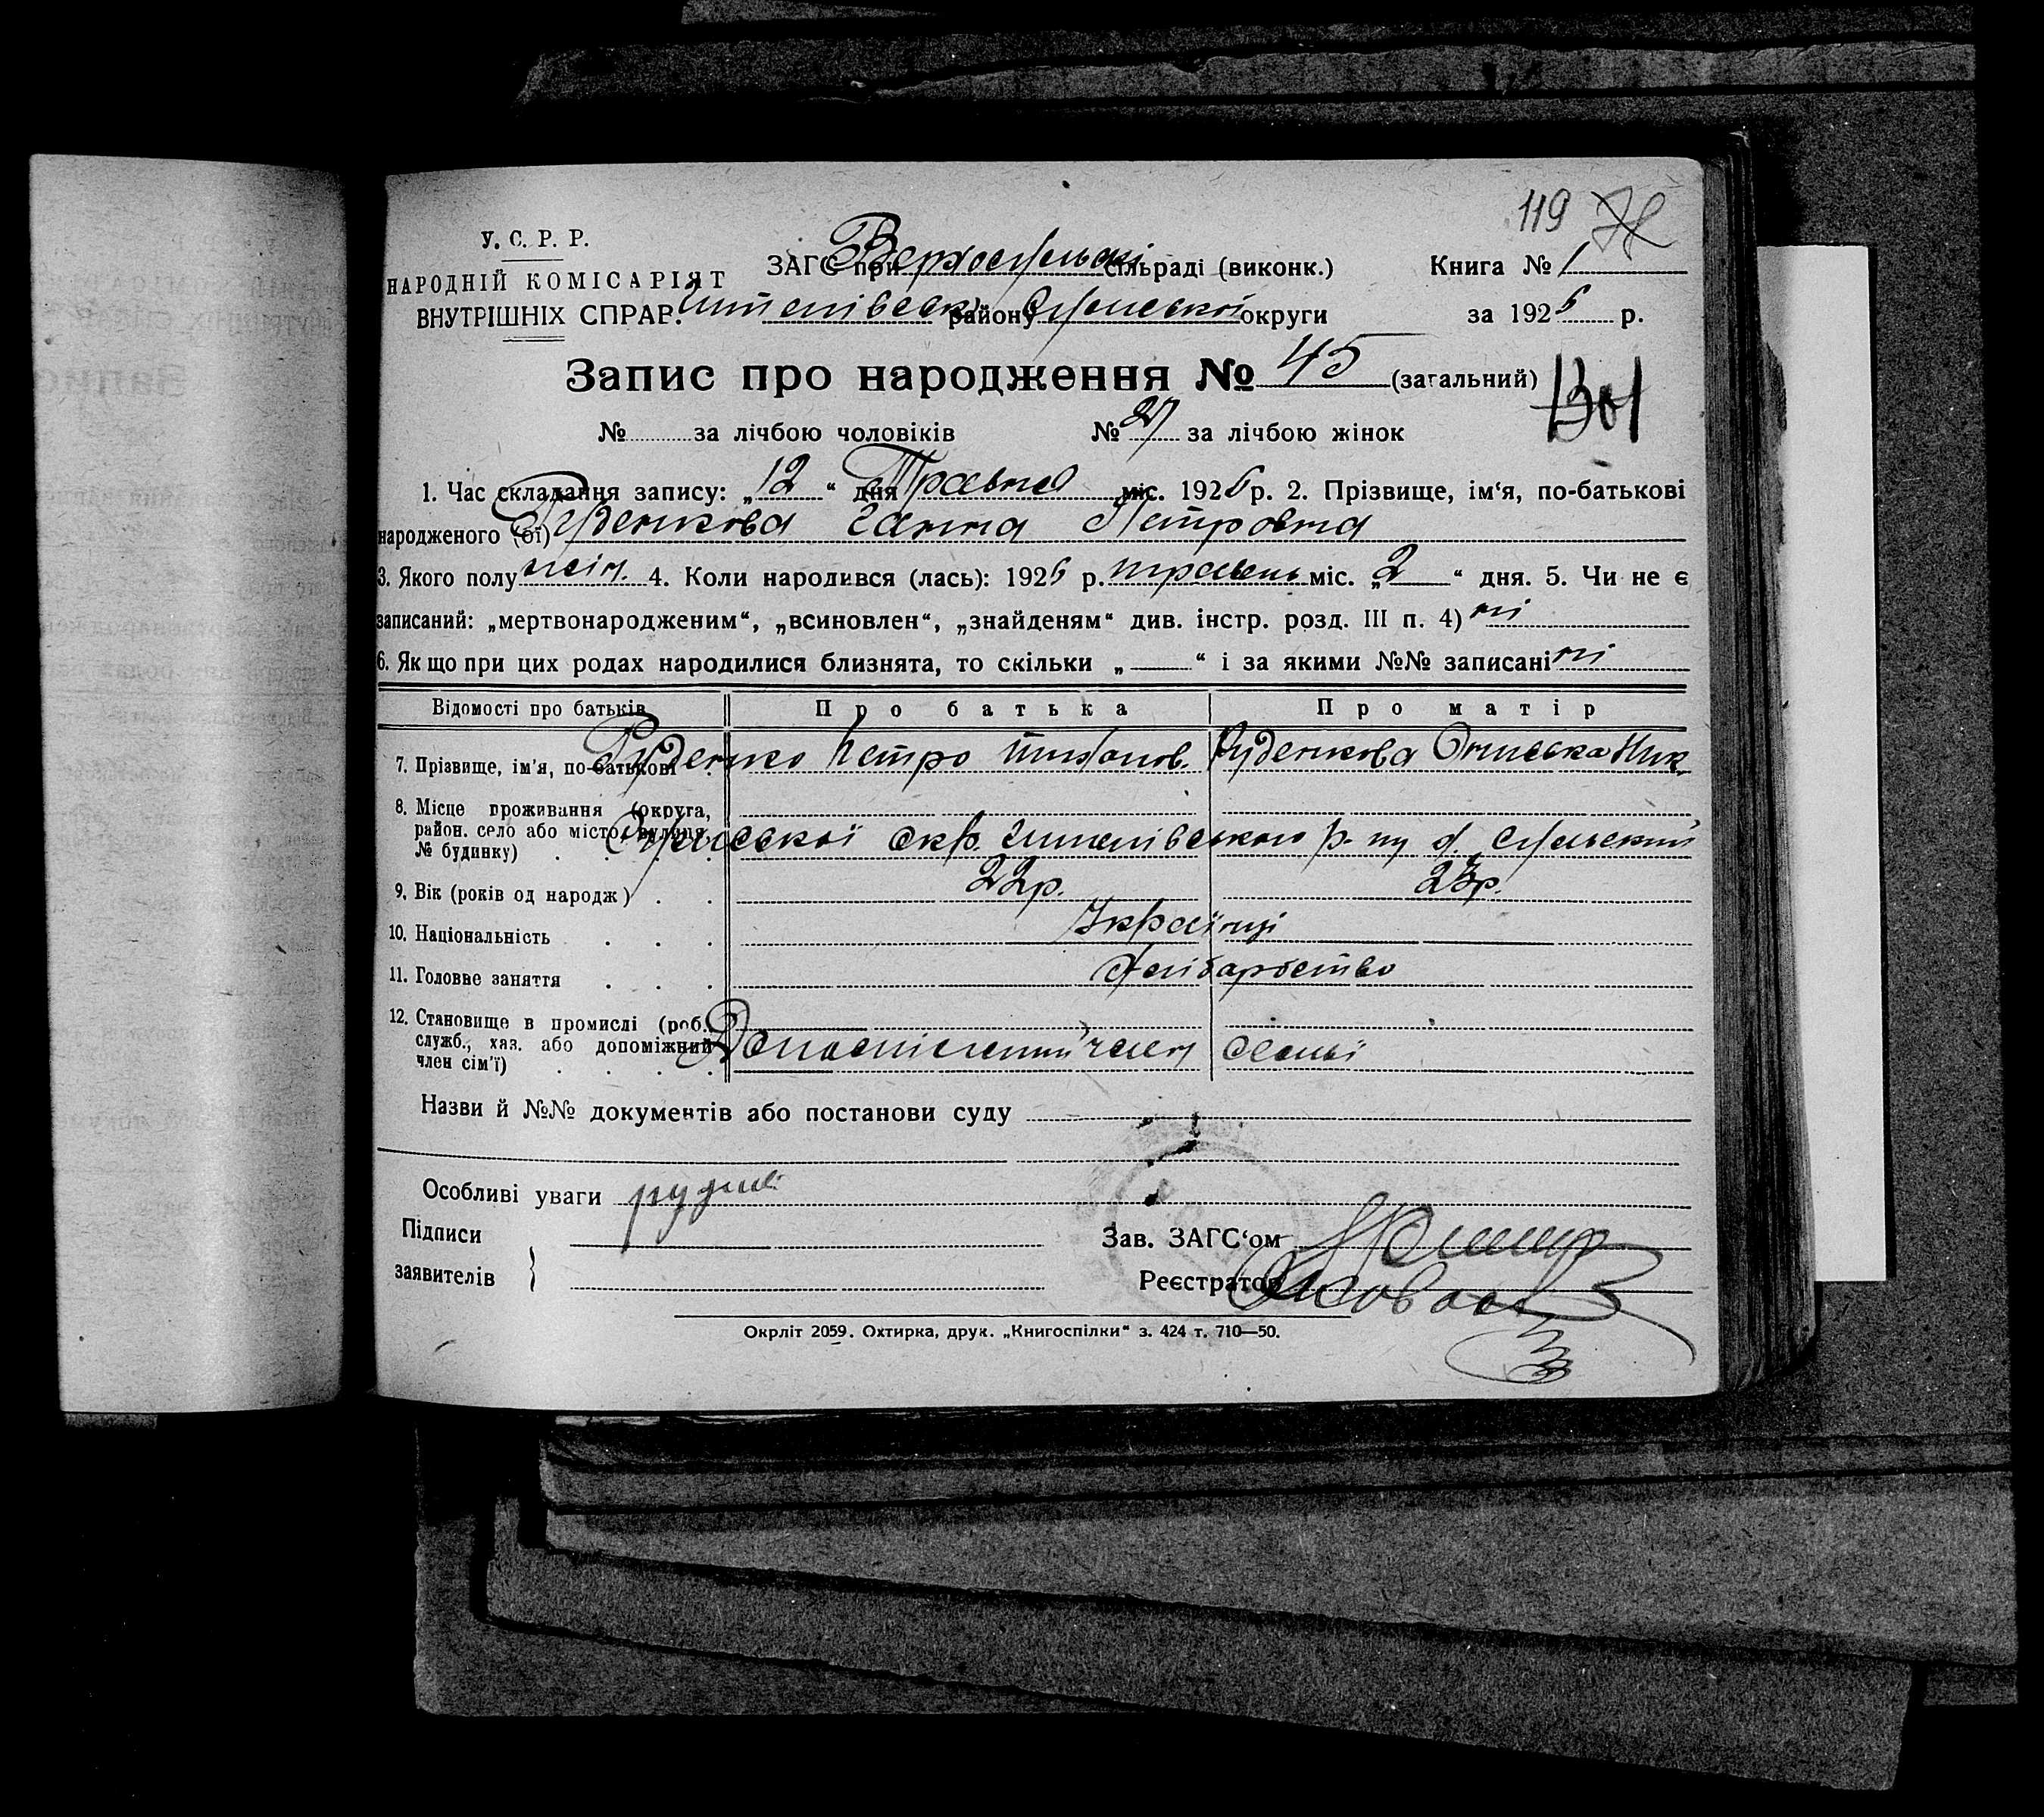 119
У. С. Р. Р.
НАРОДНІЙ КОМІСАРІЯТ
ВНУТРІШНІХ СПРАВ.
ЗАГС при Верхосульській сільраді (виконк.)
району Сумської округи
Книга № 1
за 1926 р.
Запис про народження № 45 (загальний)
1301
№ за лічбою чоловіків № 21 за лічбою жінок
1. Час складання запису: „12“ дня Травня міс. 1926 р. 2. Прізвище, ім‘я, по-батькові
народженого (ої) Руденкова Ганна Петровна
3. Якого полу жін. 4. Коли народився (лась): 1926 р. травень міс. „2“ дня. 5. Чи не є
записаний: „мертвонародженим“, „всиновлен“, „знайденям“ див. інстр. розд. III п. 4) ні
6. Якщо при цих родах народилися близнята, то скільки „ “ і за якими №№ записані ні
Відомості про батьків Про батька Про матір
7. Прізвище, ім'я, по-батькові Руденко Петро Руденкова Ониська Ник.
8. Місце проживання (округа,
район. село або місто, вулиця,
№ будинку) Сумської окр. р-ну
9. Вік (років од народж) 22р. 23р.
10. Національність Українці
11. Головне заняття Хліборобство
12. Становище в промислі (роб.,
служб., хаз. або допоміжний
член сім'ї) член семьї
Назви й №№ документів або постанови суду
Особливі уваги
Підписи
заявителів
Зав. ЗАГС‘ом
Реєстратор
Окрліт 2059. Охтирка, друк. „Книгоспілки“ з. 424 т. 710—50.